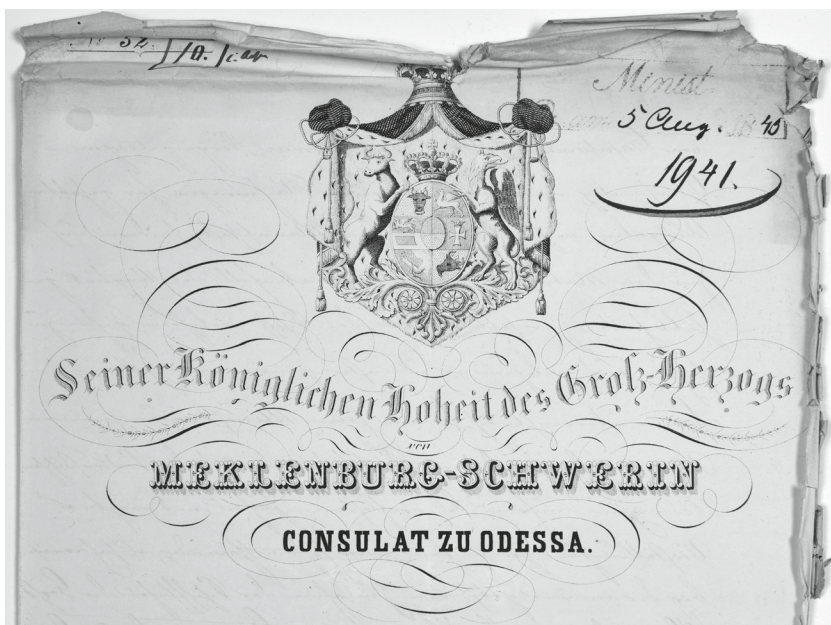 No 52.
Minist
am 5 Aug. 1845
1941.
Seiner Königlichen Hoheit des Groſs-Herzogs
von
MEKLENBURG-SCHWERIN
CONSULAT ZU ODESSA.